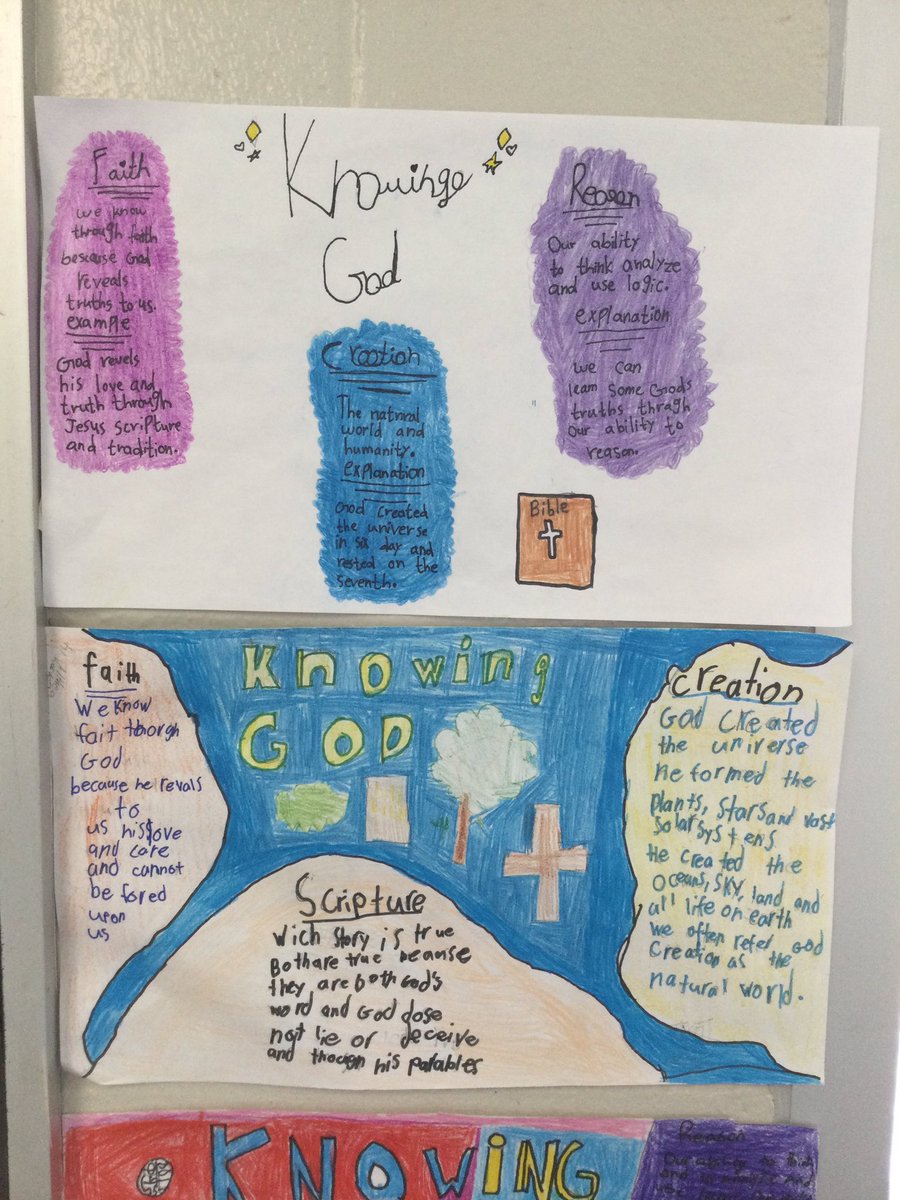 Knowinge
God
Faith
we know
through faith
bescause God
reveals
truths to us.
example
God revels
his love and
truth through
Jesus scripture
and tradition.
Creation
The natural
world and
humanity.
explanation
God created
the universe
in six day and
rested on the
seventh.
Reason
Our ability
to think analyze
and use logic.
explanation
we can
learn some Gods
truths thragh
Our ability to
reason.
Bible
Knowing
GOD
faith
We Know
fait thorgh
God
because he revals
to
us his love
and care
and cannot
be fored
upon
us
Scripture
Wich story is true
Both are true because
they are both God's
word and God dose
not lie or deceive
and thocign his parables
creation
God created
the universe
He formed the
plants, stars and vast
solar systens
He created the
Oceans, sky, land, and
all life on earth
we often refer God
Creation as the
natural world.
KNOWING
Reason
Our ability to think